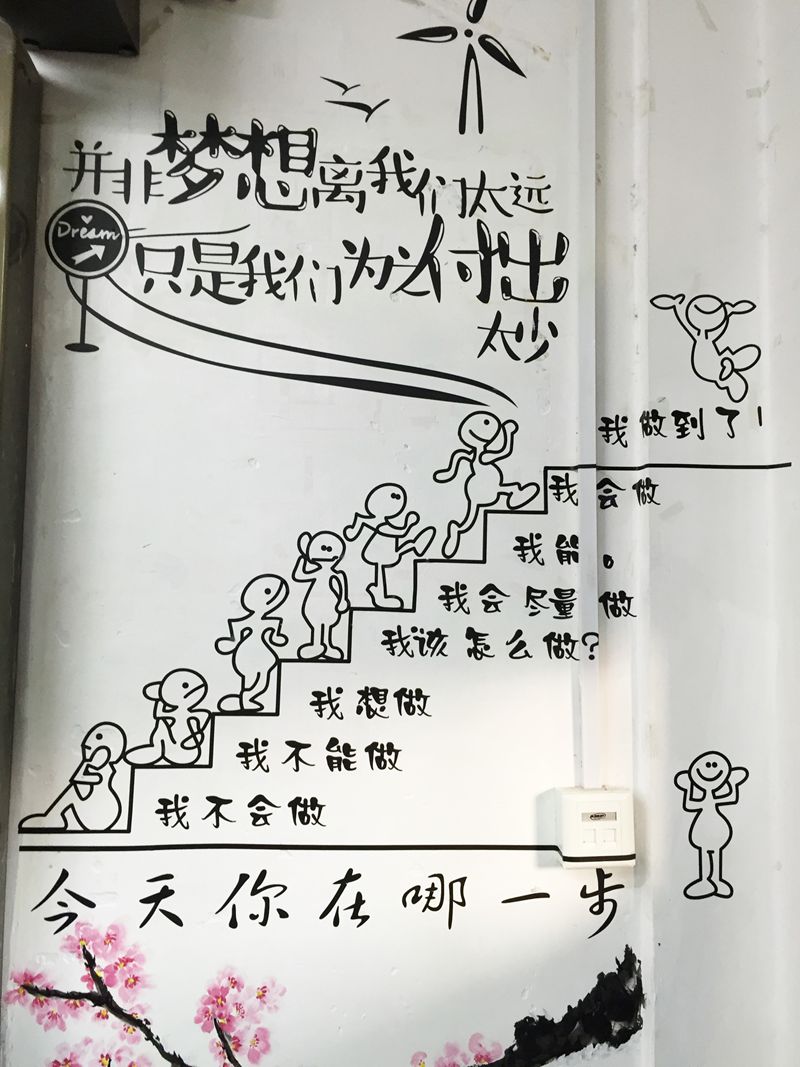 并非梦想离我们太远
Dream
只是我们为之付出
太少
我做到了!
我会做
我能。
我会尽量做
我该怎么做?
我想做
我不能做
我不会做
今天你在哪一步